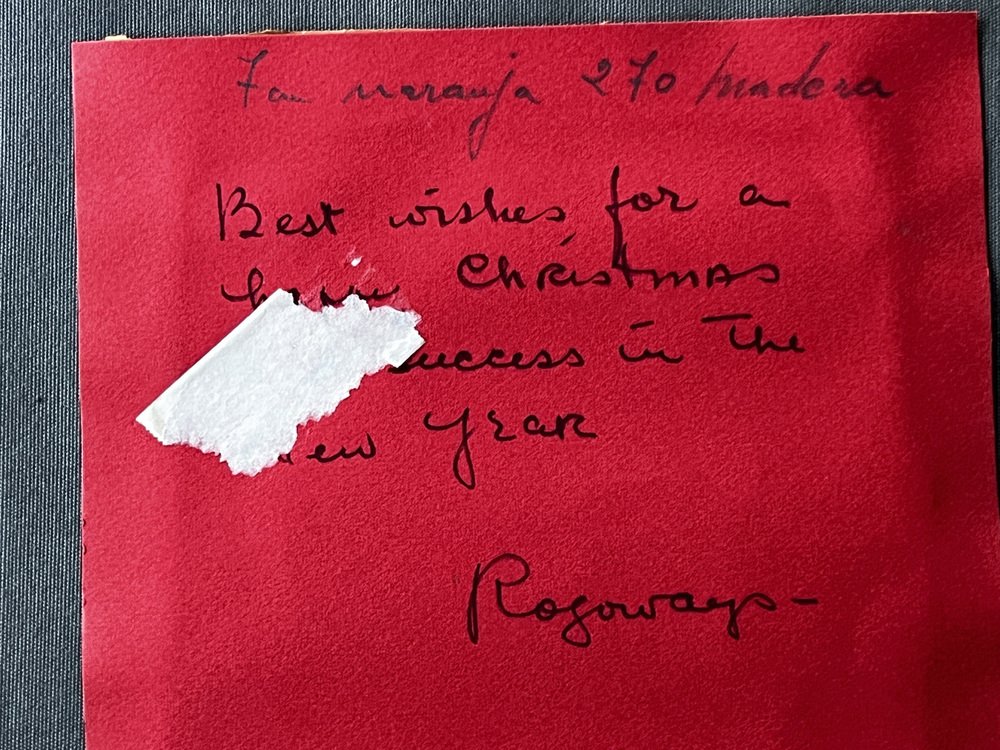 naranja 270 madera
Best wishes for a
Christmas
success in the
New Year
Rogoways-